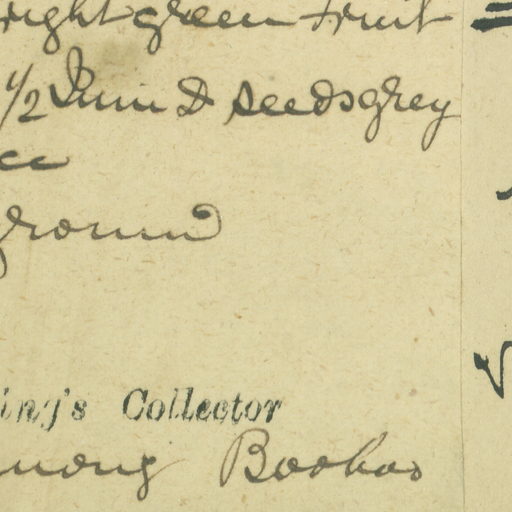 right green fruit
1/2 Inni D seeds grey
ce
ground
ing's Collector
among Booboo